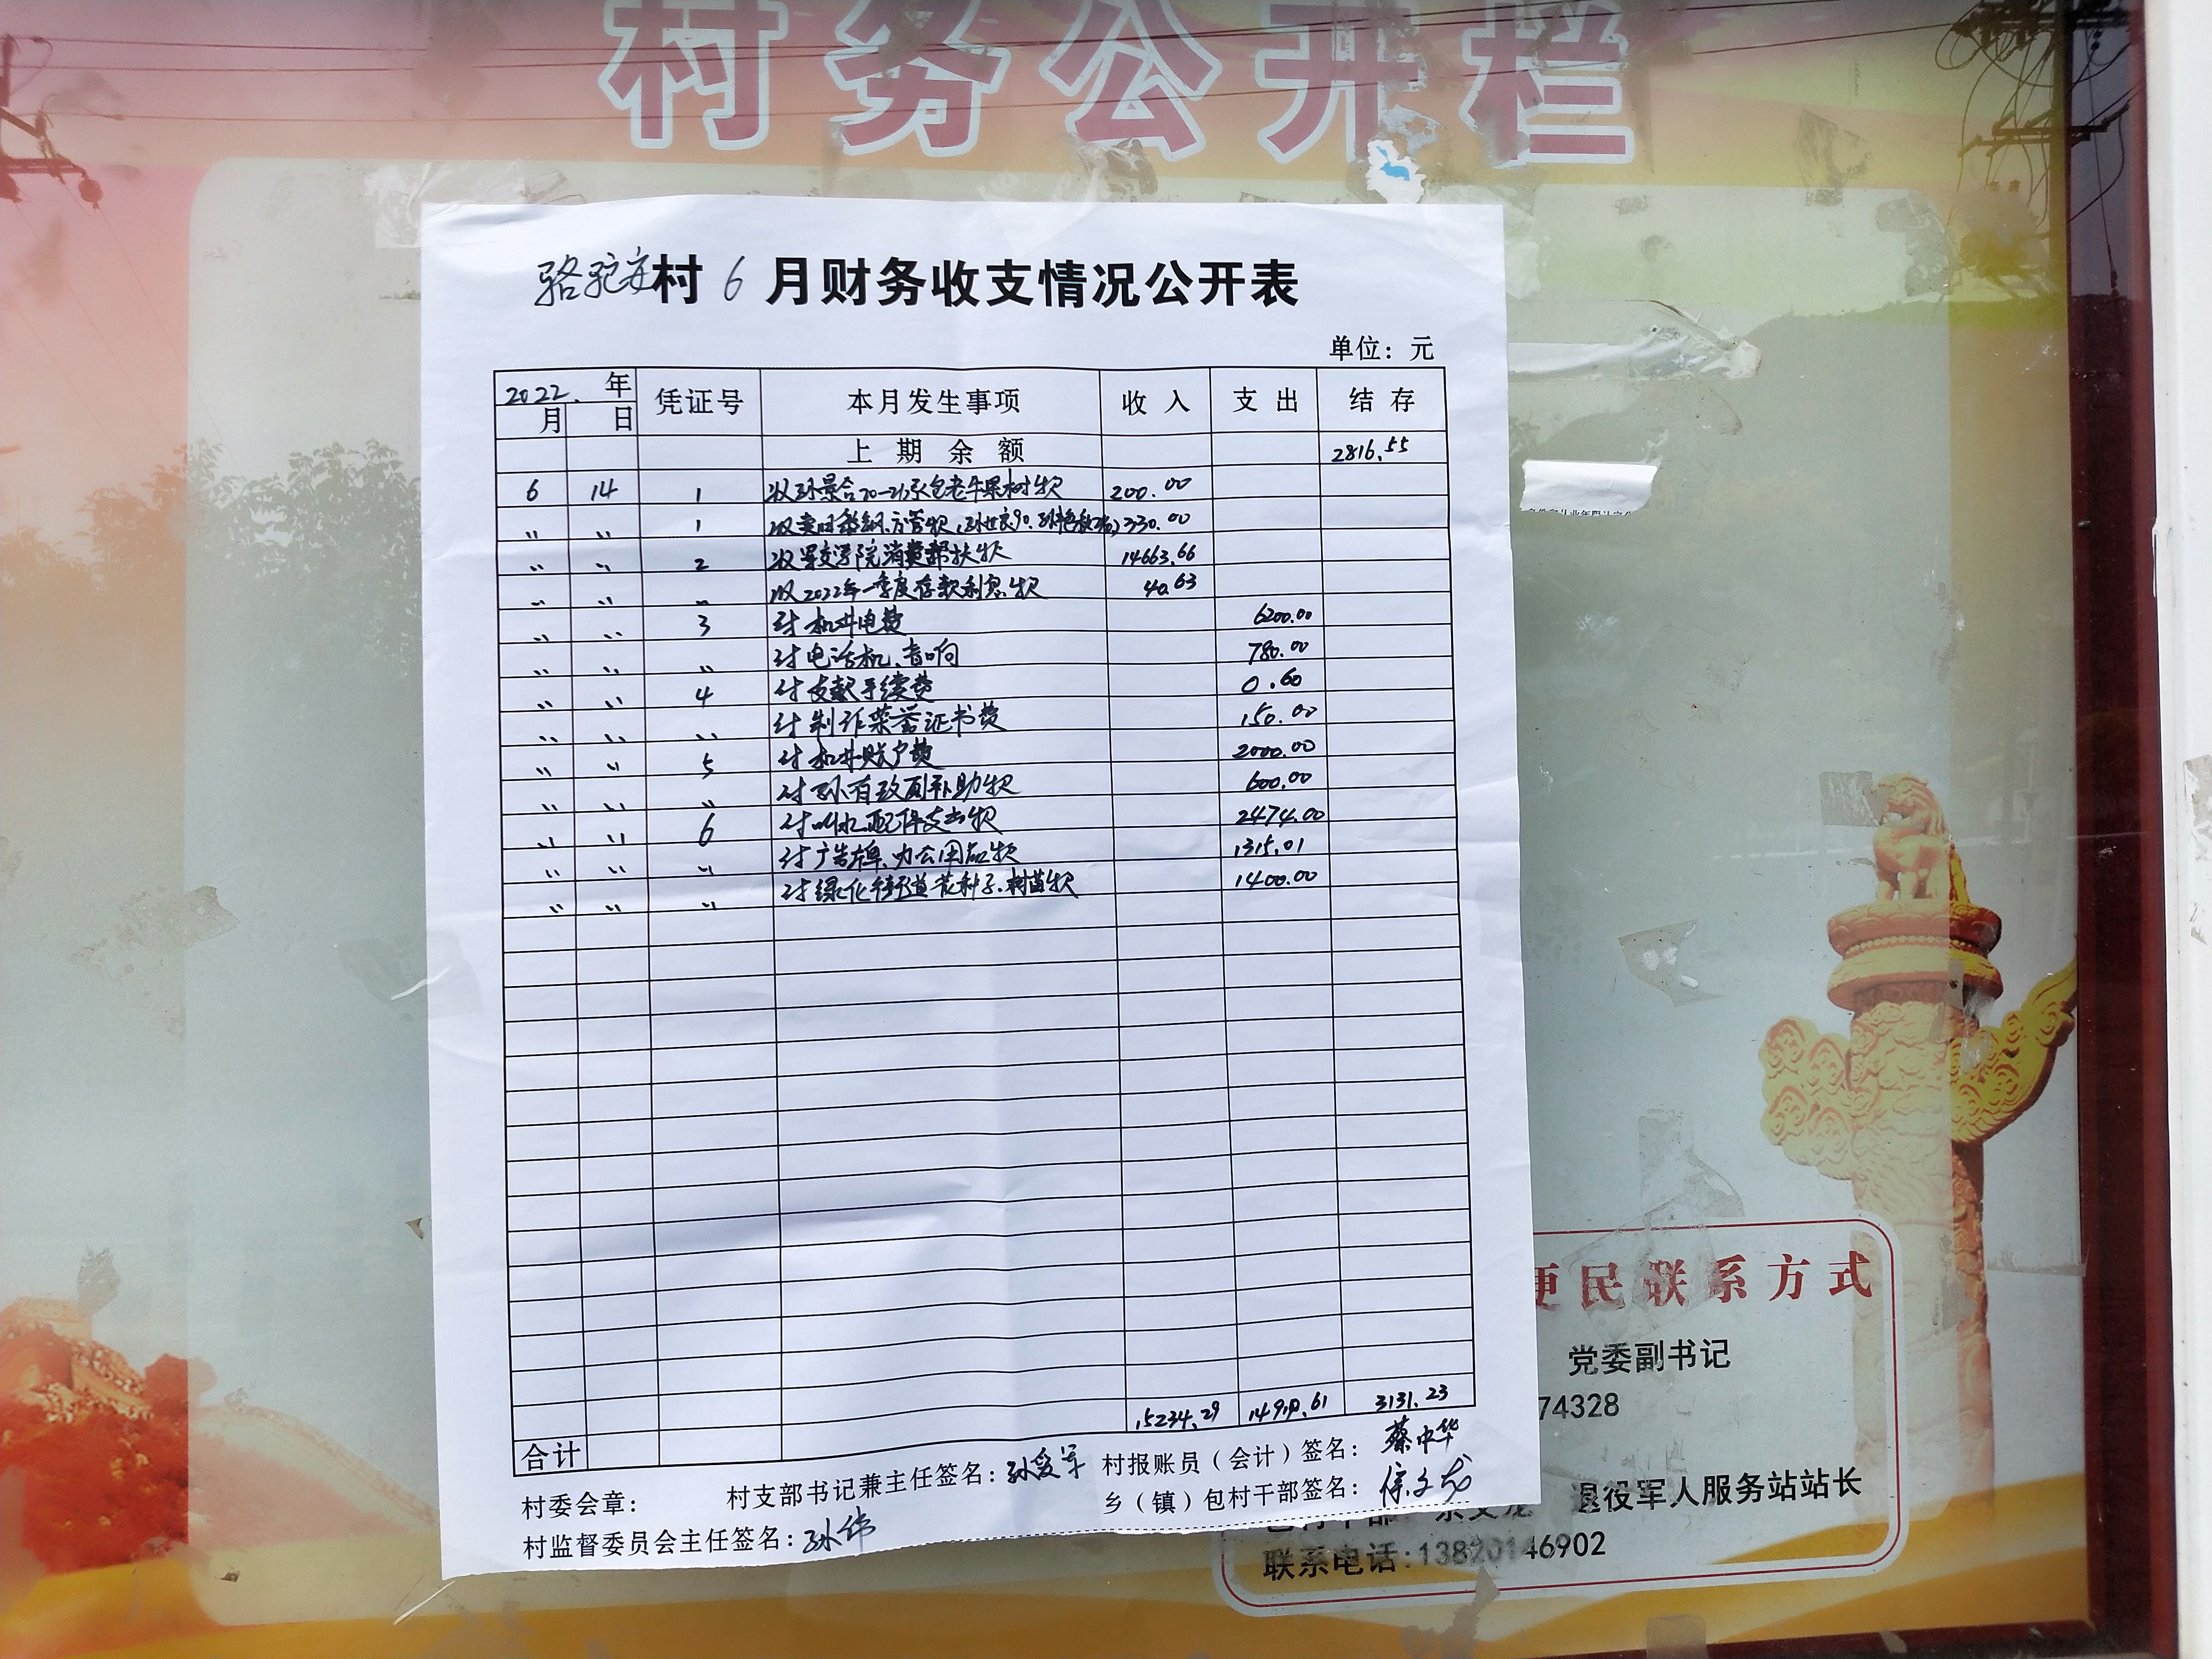 村务公开栏
骆驼 村 6 月财务收支情况公开表
单位：元
2022. 年 凭证号 本月发生事项 收入 支出 结存
月 日
上期余额 2816.55
6 14 1 收孙景合20-21承包老牛果树款 200.00
〃 〃 1 330.00
〃 〃 2 收 交学院消费帮扶款 14663.66
〃 〃 〃 收2022年一季度存款利息款 40.63
〃 〃 3 付机井电费 6200.00
〃 〃 〃 付电话机、音响 780.00
〃 〃 4 付支款手续费 0.60
〃 〃 〃 付制作荣誉证书费 150.00
〃 〃 5 付机井账户费 2000.00
〃 〃 〃 付孙有 补助款 600.00
〃 〃 6 付 配件支出款 2474.00
〃 〃 〃 付广告牌、办公用品款 1315.01
〃 〃 〃 付绿化街道花种子、树苗款 1400.00
15234.29 14919.61 3131.23
合计
村委会章： 村支部书记兼主任签名：孙爱军 村报账员（会计）签名：蔡中华
村监督委员会主任签名：孙伟 乡（镇）包村干部签名：徐文龙
便民联系方式
党委副书记
74328
退役军人服务站站长
联系电话:13820146902